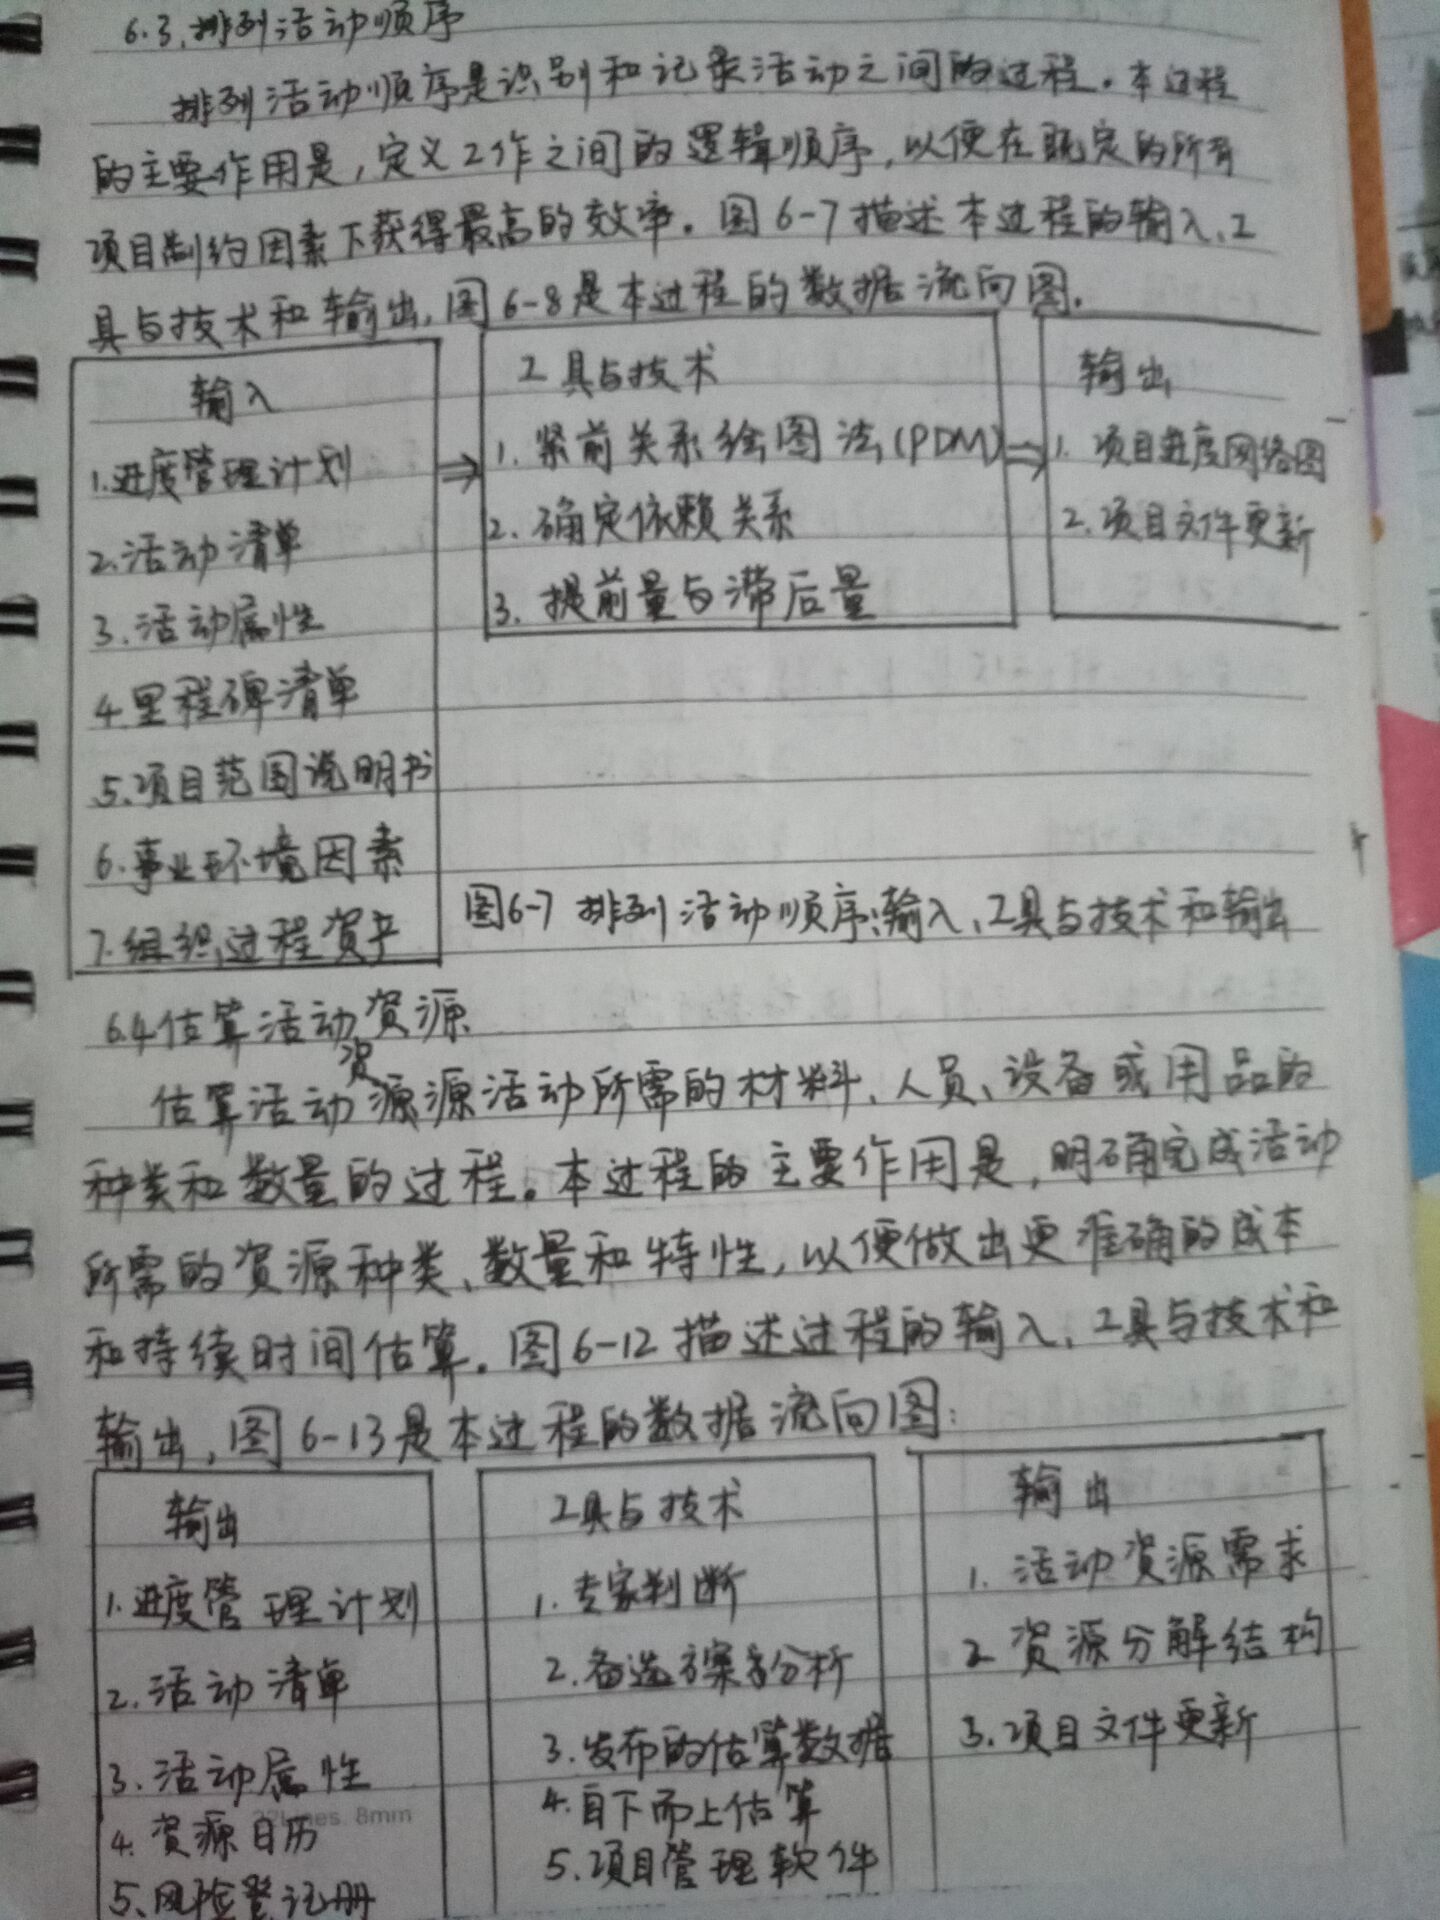 6.3.排列活动顺序
排列活动顺序是识别和记录活动之间的过程。本过程
的主要作用是,定义工作之间的逻辑顺序,以便在既定的所有
项目制约因素下获得最高的效率。图6-7描述本过程的输入、工
具与技术和输出,图6-8是本过程的数据流向图.
输入
1.进度管理计划
2.活动清单
3.活动属性
4.里程碑清单
5.项目范围说明书
6.事业环境因素
7.组织过程资产
⇒
工具与技术
1.紧前关系绘图法(PDM)
2.确定依赖关系
3.提前量与滞后量
⇒
输出
1.项目进度网络图
2.项目文件更新
图6-7 排列活动顺序:输入、工具与技术和输出
6.4估算活动资源
估算活动资源源活动所需的材料、人员、设备或用品的
种类和数量的过程。本过程的主要作用是,明确完成活动
所需的资源种类、数量和特性,以便做出更准确的成本
和持续时间估算。图6-12描述过程的输入、工具与技术和
输出,图6-13是本过程的数据流向图:
输出
1.进度管理计划
2.活动清单
3.活动属性
4.资源日历
5.风险登记册
工具与技术
1.专家判断
2.备选方案分析
3.发布的估算数据
4.自下而上估算
5.项目管理软件
输出
1.活动资源需求
2.资源分解结构
3.项目文件更新
8mm